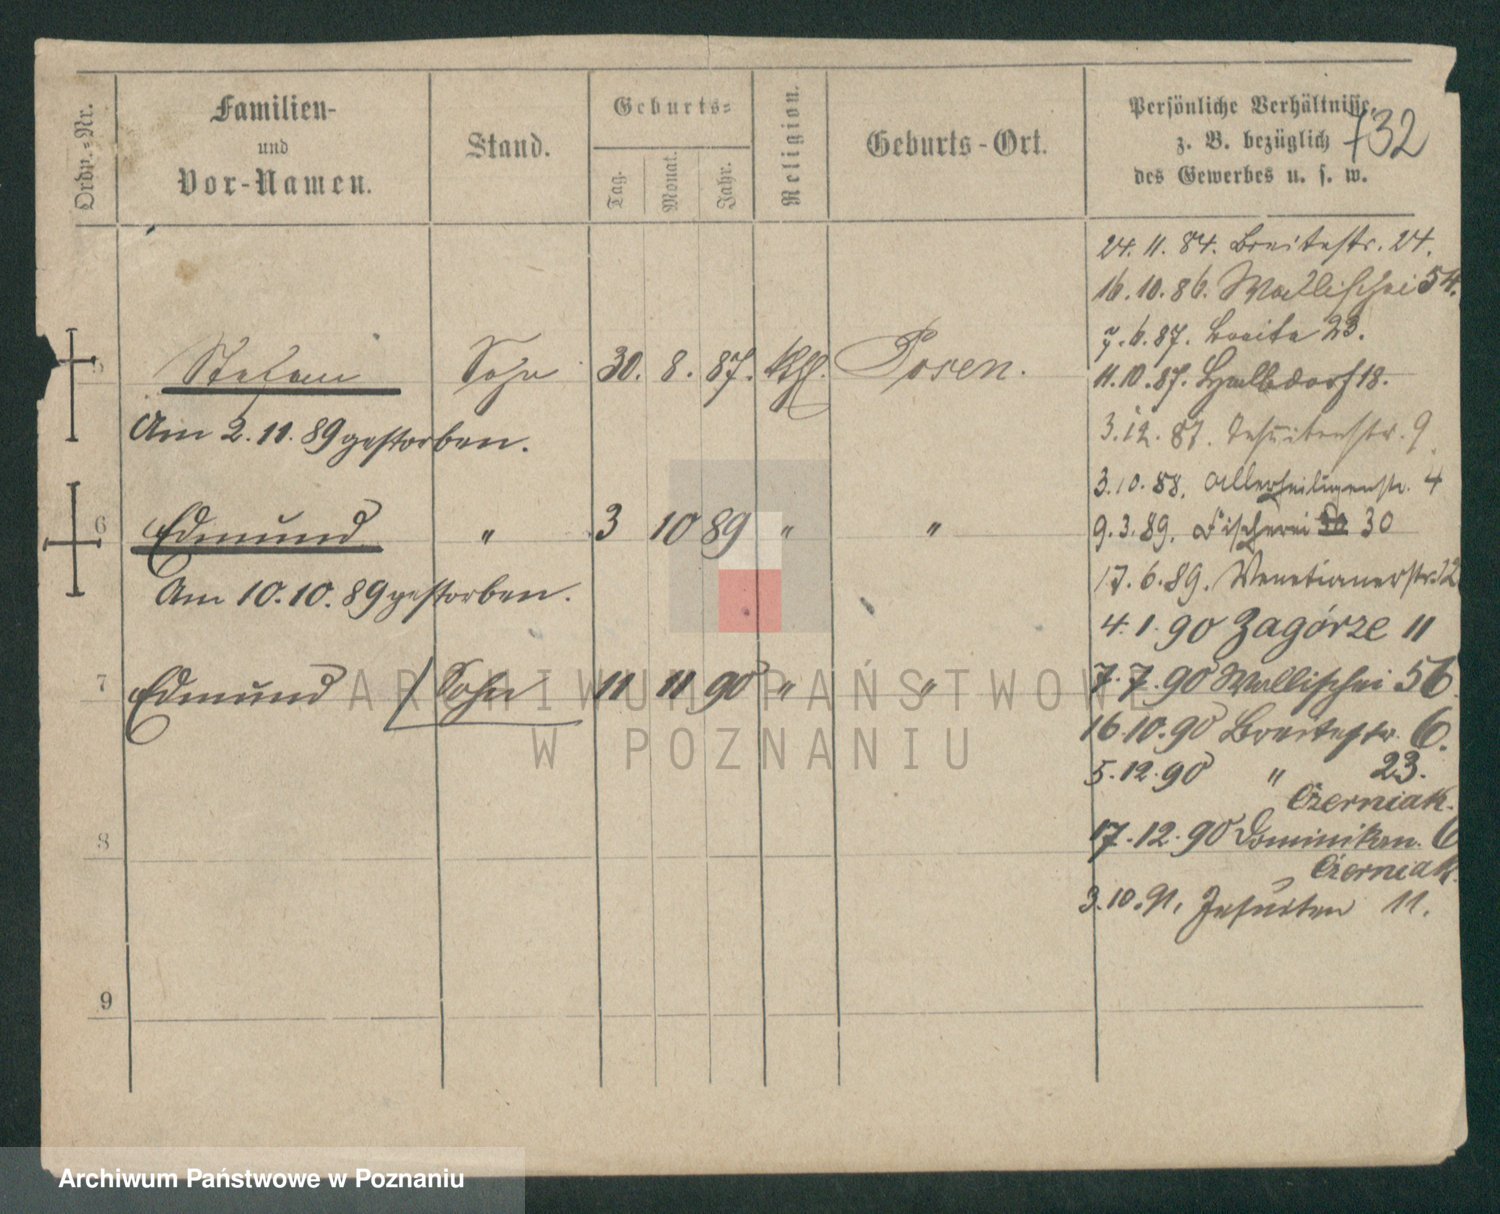 Ordn.-Nr.
Familien-
und
Vor-Namen.
Stand.
Geburts-
Tag.
Monat.
Jahr.
Religion.
Geburts-Ort.
Persönliche Verhältnisse,
z. B. bezüglich
des Gewerbes u. s. w.
732
24. 11. 84. Breitestr. 24.
16. 10. 86. Wallischei 54.
7. 6. 87. Breite 23.
5 Stefan Sohn 30. 8. 87. kth. Posen.
11. 10. 87. Halbdorf 18.
Am 2. 11. 89 gestorben.
3. 12. 87. Jesuitenstr. 9
3. 10. 88. Allerheiligenstr. 4
6 Edmund " 3 10 89 " "
9. 3. 89. Fischerei 30
Am 10. 10. 89 gestorben.
17. 6. 89. Venetianerstr. 12
4. 1. 90 Zagórze 11
7 Edmund / Sohn 11 11 90 " "
7. 7. 90 Wallischei 56.
16. 10. 90 Breitestr. 6.
5. 12. 90 " 23.
Czerniak.
8
17. 12. 90 Dominikan. 6
Czerniak.
3. 10. 91, Jesuiten 11.
9
ARCHIWUM PAŃSTWOWE
W POZNANIU
Archiwum Państwowe w Poznaniu